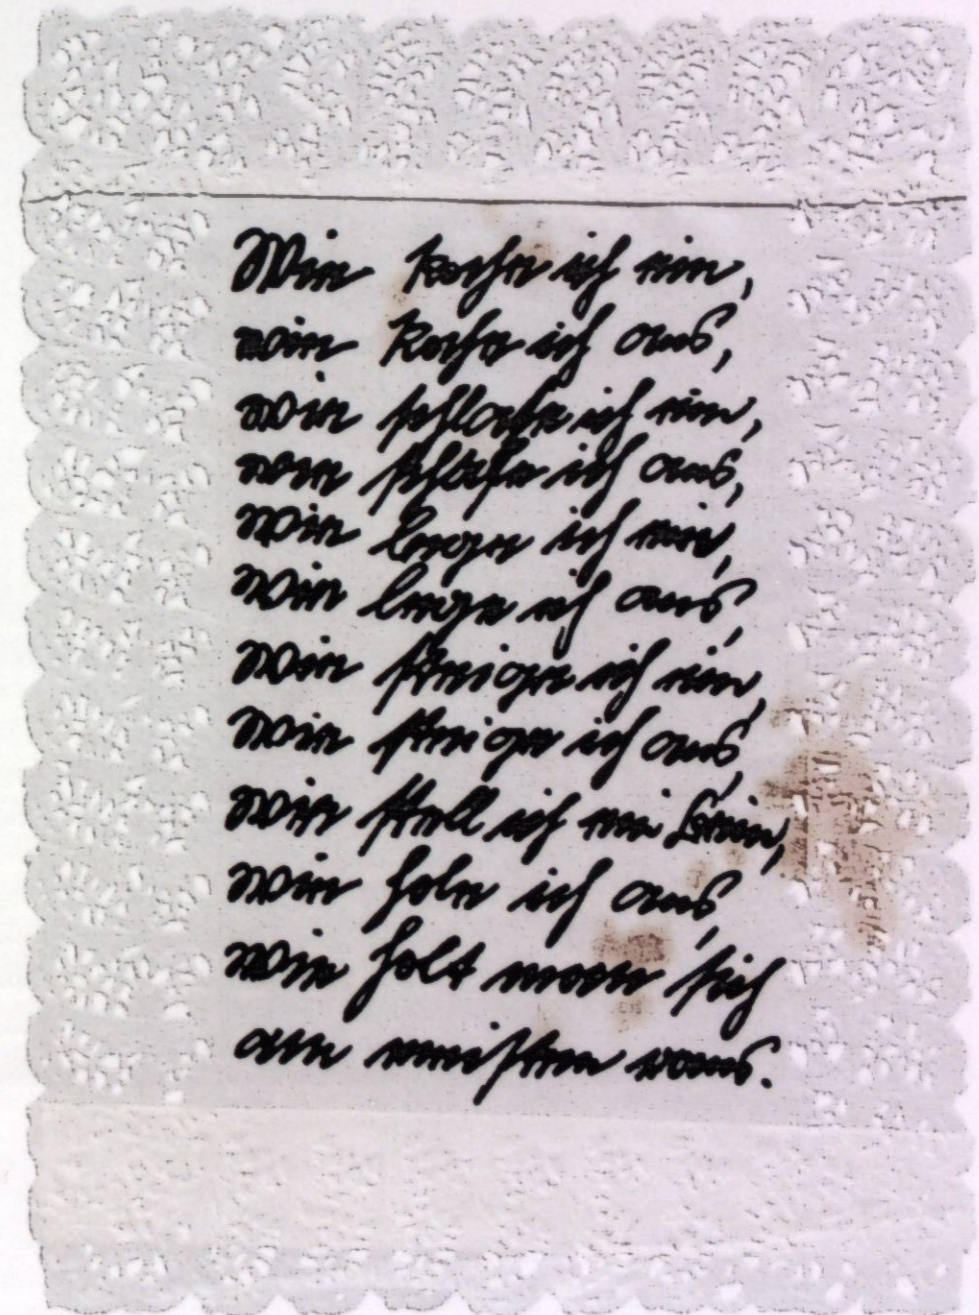 Wie koche ich ein,
wie koche ich aus,
wie schlafe ich ein,
wie schlafe ich aus,
wie lege ich ein,
wie lege ich aus,
wie steige ich ein,
wie steige ich aus,
wie stell ich ein Bein,
wie hole ich aus,
wie holt man sich
am meisten raus.